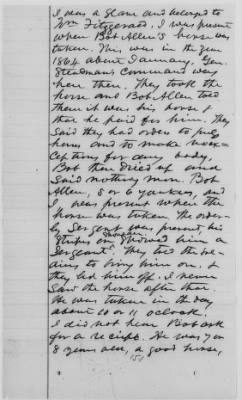 I was a Slave and belonged to
Wm Fitzgerald. I was present
when Bob Allen's horse was
taken. This was in the year
1864 about January, Gen.
Steadman's Command was
here then. They took the
horse and Bob Allen told
them it was his horse &
that he paid for him. They
said they had order to
horses and to make no ex-
ceptions for any body,
Bob then dried up and
said nothing more. Bob
Allen, 5 or 6 yankees, and
I was present when the
horse was taken. The order-
ly Sergent was present, his
Stripes on showed him a
Sergeant. They told the
to bring him on. &
they led him off. I never
saw the horse after that
He was taken in the day
about 10 or 11 oclock.
I did not hear Bob ask
for a reciept. He was 7 or
8 years old, a good horse,
151